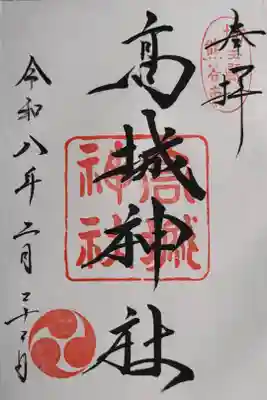 奉拝
高城神社
高城
神社
令和八年二月二十二日